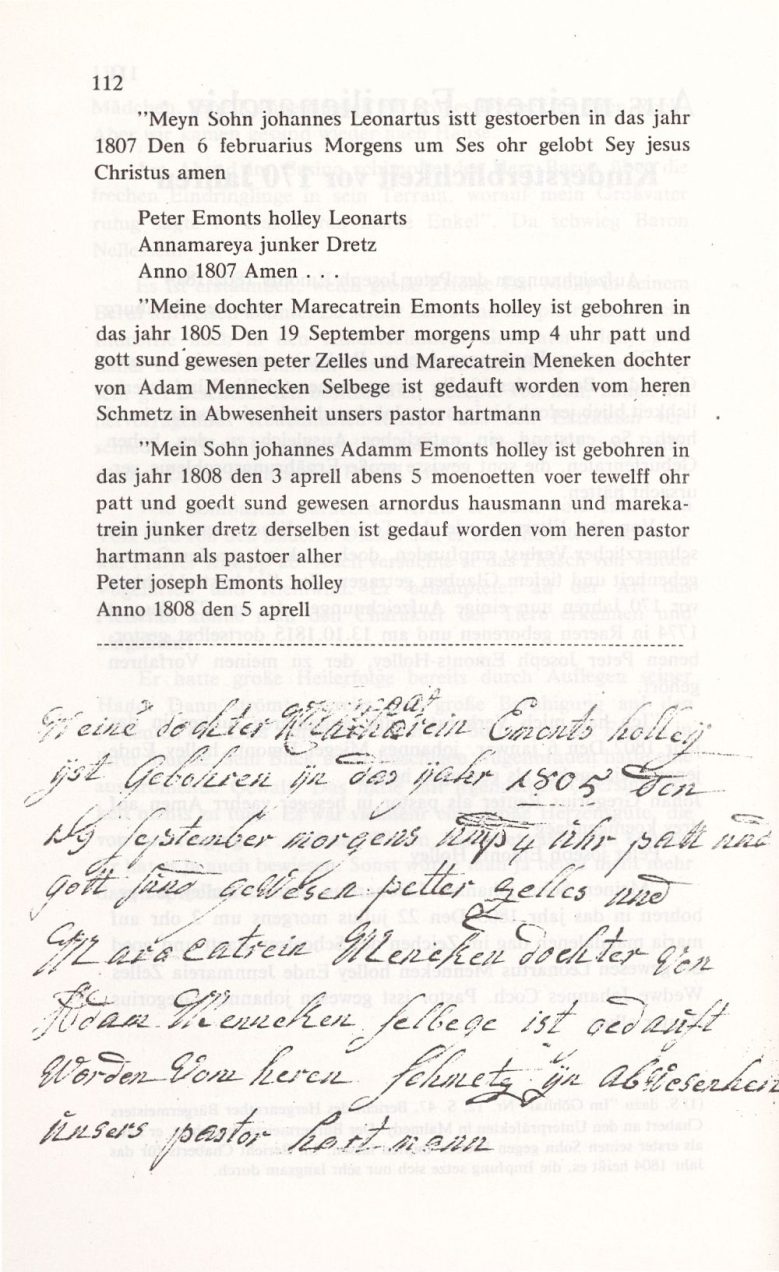 112
"Meyn Sohn johannes Leonartus istt gestoerben in das jahr
1807 Den 6 februarius Morgens um Ses ohr gelobt Sey jesus
Christus amen
Peter Emonts holley Leonarts
Annamareya junker Dretz
Anno 1807 Amen . . .
"Meine dochter Marecatrein Emonts holley ist gebohren in
das jahr 1805 Den 19 September morgens ump 4 uhr patt und
gott sund gewesen peter Zelles und Marecatrein Meneken dochter
von Adam Mennecken Selbege ist gedauft worden vom heren
Schmetz in Abwesenheit unsers pastor hartmann
"Mein Sohn johannes Adamm Emonts holley ist gebohren in
das jahr 1808 den 3 aprell abens 5 moenoetten voer tewelff ohr
patt und goedt sund gewesen arnordus hausmann und mareka-
trein junker dretz derselben ist gedauf worden vom heren pastor
hartmann als pastoer alher
Peter joseph Emonts holley
Anno 1808 den 5 aprell
Meine dochter Emonts holley
ijst Gebohren ijn das ijahr 1805 Den
19 September morgens ump 4 ühr patt und
gott sund geWesen petter Zelles und
Maracatrein Meneken dochter Von
Adam Menneken selbege ist gedauft
Worden Vom heren Schmetz ijn abWesenheit
ünsers pastor hartmann